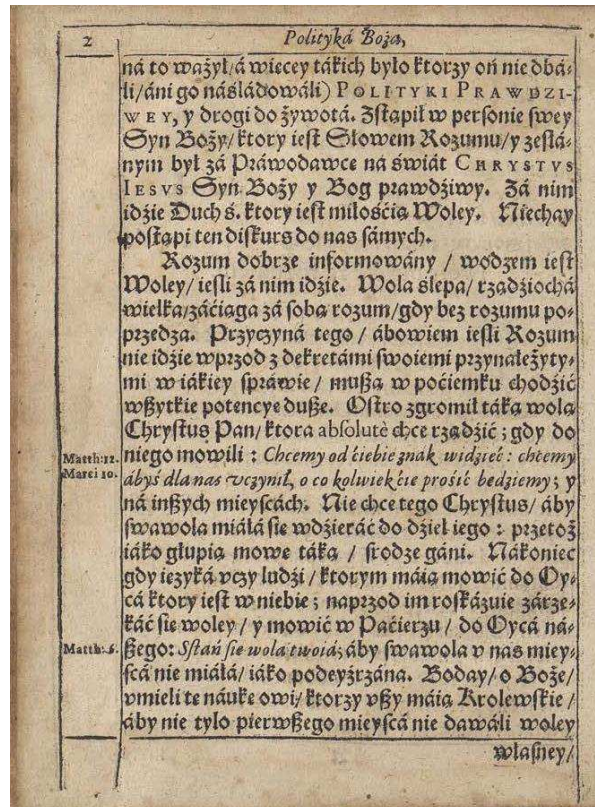 2
Polityká Boża,
ná to ważył/á wiecey tákich było ktorzy oń nie dbá⸗
li/áni go náśládowáli) POLITYKI PRAWDZI-
WEY, y drogi do żywotá. Zstąpił w personie swey
Syn Boży/ktory iest Słowem Rozumu/y zesłá⸗
nym był zá Práwodawce ná świát CHRYSTVS
IESVS Syn Boży y Bog prawdźiwy. Zá nim
idźie Duch ś. ktory iest miłośćią Woley. Niechay
postąpi ten diskurs do nas sámych.
Rozum dobrze informowány / wodzem iest
Woley/iesli zá nim idźie. Wola ślepa/rządźiochá
wielka/záćiąga zá sobą rozum/gdy bez rozumu po⸗
przedza. Przyczyná tego / ábowiem iesli Rozum
nie idźie wprzod z dekretámi swoiemi przynależyty⸗
mi w iákiey spráwie / muszą w poćiemku chodźić
wszytkie potencye dusze. Ostro zgromił táką wolą
Chrystus Pan/ktora absolutè chce rządźić; gdy do
Matth:12.
niego mowili : Chcemy od ćiebie znák widźieć : chcemy
Marci 10.
ábyś dla nas vczynił, o co kolwiek ćie prośić bedźiemy; y
ná inszych mieyscách. Nie chce tego Chrystus/áby
swawola miáłá sie wdźieráć do dźieł iego : przetoż
iáko głupią mowe táką / srodze gáni. Nákoniec
gdy ięzyká vczy ludźi/ktorym máią mowić do Oy⸗
cá ktory iest w niebie; naprzod im roskázuie zárze⸗
káć sie woley / y mowić w Paćierzu / do Oycá ná⸗
Matth:6.
szego: Sstań sie wola twoiá; áby swawola v nas miey⸗
scá nie miáłá/iáko podeyźrzána. Boday/o Boże/
vmieli te náuke owi/ktorzy vszy máią Krolewskie/
áby nie tylo pierwszego mieyscá nie dawáli woley
włásney/